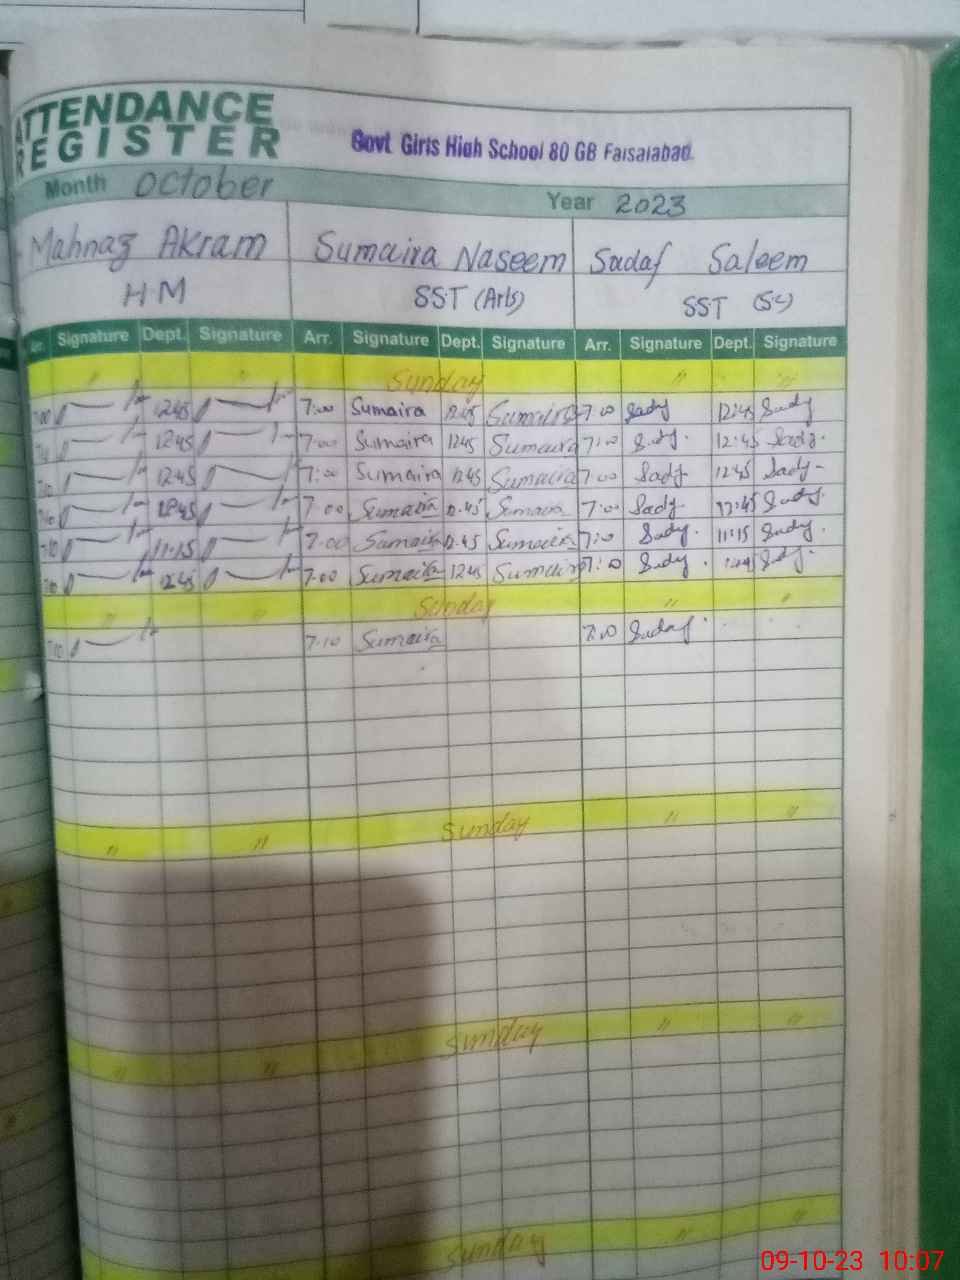 ATTENDANCE
REGISTER
Govt. Girls High School 80 GB Faisalabad.
Month October Year 2023
Mahnaz Akram Sumaira Naseem Sadaf Saleem
HM SST (Arts) SST (Sc)
Arr. Signature Dept. Signature Arr. Signature Dept. Signature Arr. Signature Dept. Signature
" " Sunday " "
7:00 12:45 7:00 Sumaira 12:45 Sumaira 7:00 Sady 12:45 Sady
12:45 7:00 Sumaira 12:45 Sumaira 7:00 Sady. 12:45 Sady.
12:45 7:00 Sumaira 12:45 Sumaira 7:00 Sady 12:45 Sady
12:45 7:00 Sumaira 12:45 Sumaira 7:00 Sady. 12:45 Sady.
7:10 11:15 7:00 Sumaira 12:45 Sumaira 7:00 Sady. 11:15 Sady.
7:00 12:45 7:00 Sumaira 12:45 Sumaira 7:00 Sady. Sady.
" " Sunday " "
7:10 7:10 Sumaira 7:00 Sadaf.
" " Sunday " "
" " Sunday " "
Sunday " "
09-10-23 10:07